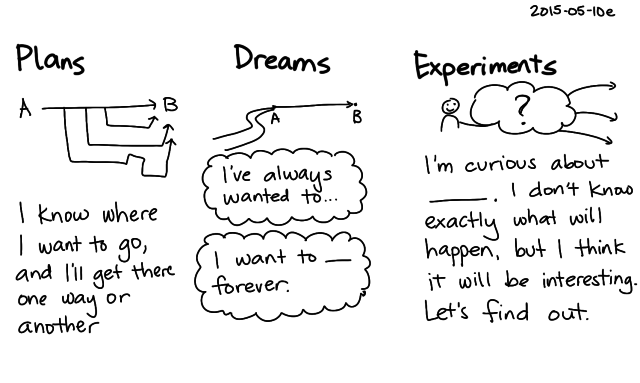 2015-05-10e
Plans
A
B
I know where
I want to go,
and I'll get there
one way or
another
Dreams
A
B
I've always
wanted to...
I want to ___
forever.
Experiments
?
I'm curious about
_____. I don't know
exactly what will
happen, but I think
it will be interesting.
Let's find out.